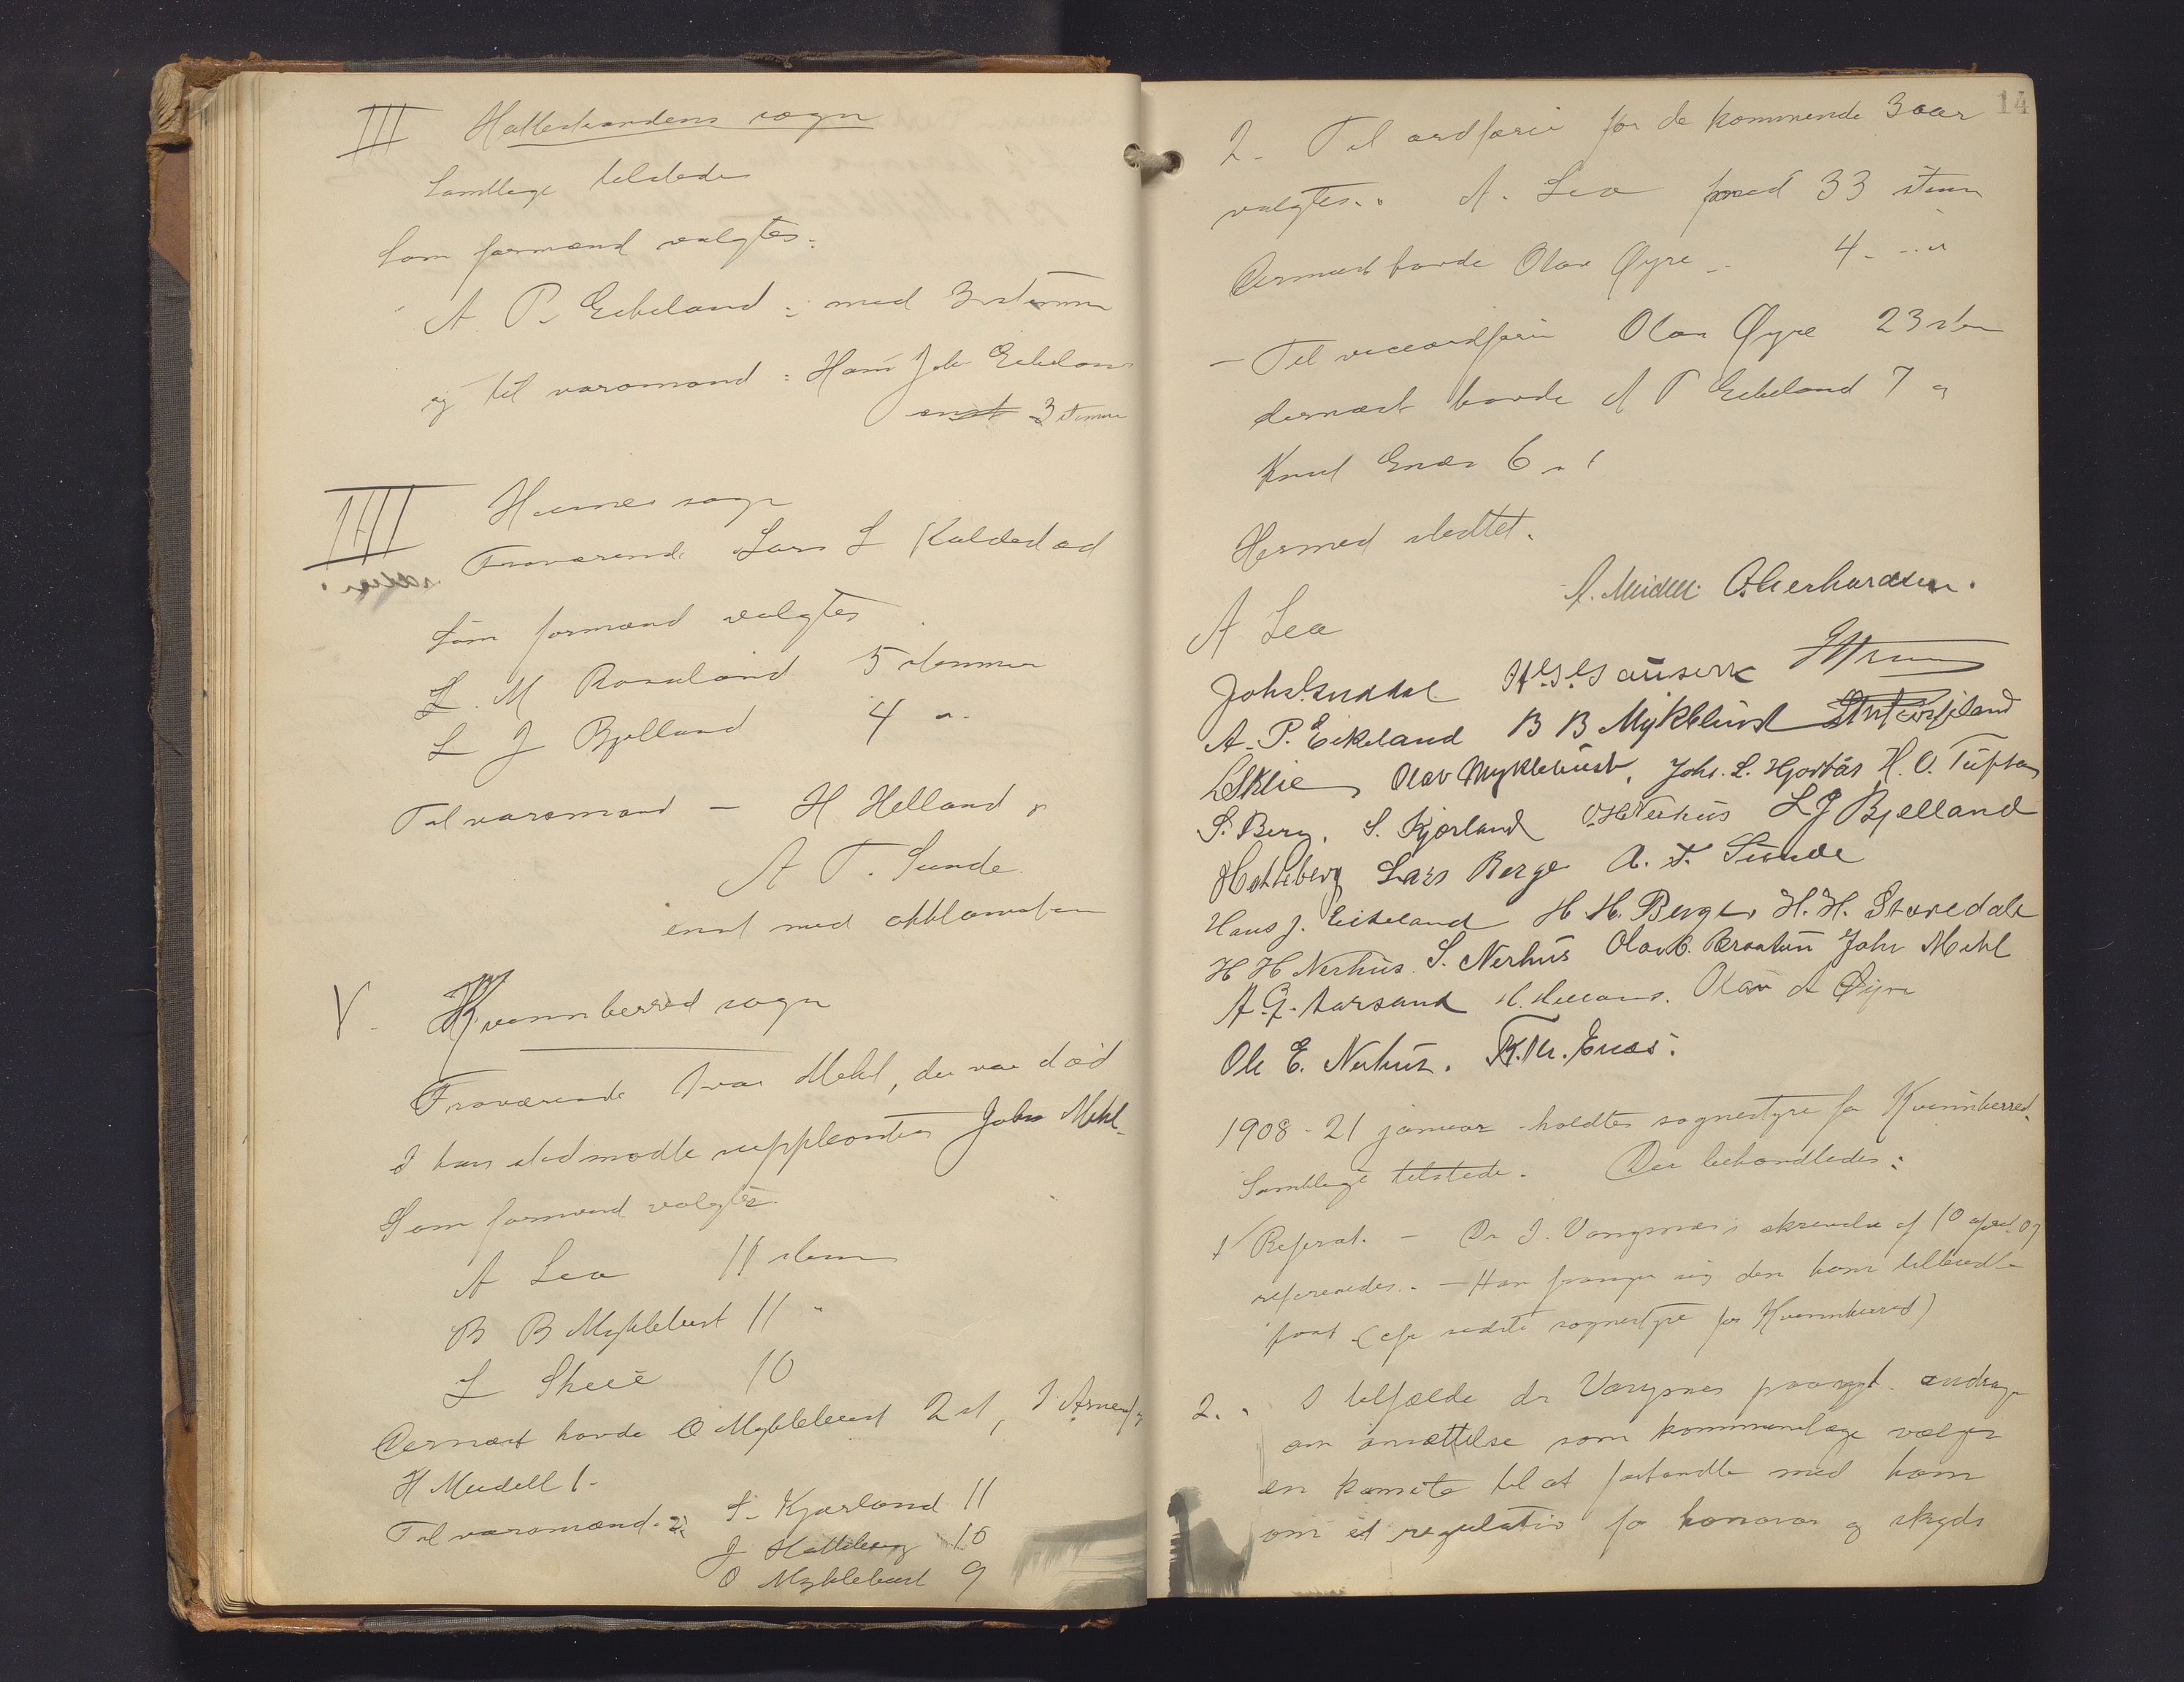 III Hattestrandens sogn
Samtlege tilstede
Som formænd valgtes:
A. P. Eikeland : med 3 stemmer
og til varamand : Hans Joh Eikeland
enst 3 stemmer
IIII Husnes sogn
Fraværende Lars L Kaldestad
Som formænd valgtes
L. M Rosseland 5 stemmer
L J Bjelland 4 "
Til varamænd – H Helland o
A T. Sunde
enst med akklamation
V. Kvinnherred sogn
Fraværende Ivar Mehl, der var død
I hans sted mødte suppleanten John Mehl
Som formænd valgtes
A Lea 11 stem
B B Myklebust 11 "
L Skeie 10
Dernæst havde O Myklebust 2 st,
H Meidell 1 -
Til varamænd: S. Kjærland 11
J Hatteberg 10
O Myklebust 9
14
2. Til ordfører for de kommende 3 aar
valgtes: A. Lea med 33 stem
Dernæst havde Olav Øyre 4 - "
– Til viceordfører Olav Øyre 23 stem
dernæst havde A P Eikeland 7 "
Knut Enæs 6 "
Hermed sluttet.
A. Meidell. O. Gerhardsen.
A Lea
A. P. Eikeland B B Myklebust
L Skeie Olav Myklebust, Johs. L. Hjortås H. O. Tufta
S. Berg. S. Kjærland O. H. Nerhus L J Bjelland
Hatteberg Lars Berge A. T. Sunde
Hans J. Eikeland H H. Berge H. H. Staredale
H H Nerhus. S. Nerhus Olav B. Braatun John Mehl
A. G. Aarsand H. Helland. Olav A Øyre
Ole E. Nerhus. K. M. Enæs.
1908 - 21 januar holdtes sognestyre for Kvinnherred.
Samtlege tilstede. Der behandledes:
1 Referat. – Dr I. Vangsnes's skrivelse af 10 april 07
refereredes. – Han frasiger sig den ham tilbudte
post (cfr sidste sognestyre for Kvinnherred)
2. I tilfælde dr Vangsnes paanyt andrager
om ansættelse som kommunelæge vælges
en komite til at forhandle med ham
om et regulativ for honorar og skyds